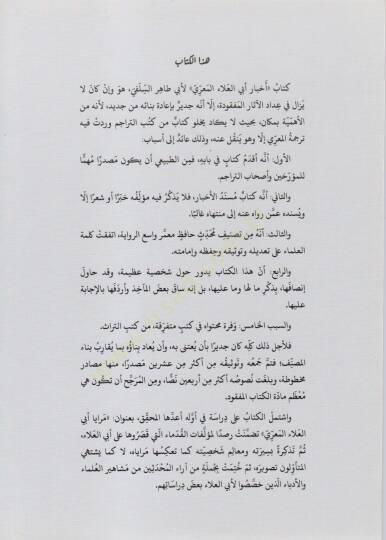 هذا الكتاب
كتابُ «أَخبار أَبي العَلاء المَعرّي» لأَبي طاهِر السِّلَفيّ، هوَ وإِنْ كانَ لا
يَزال في عِداد الآثار المَفقودة، إلّا أنَّه جديرٌ بإعادة بنائه من جديد، لأنه من
الأهمّيّة بمكان، بحيث لا يكاد يخلو كتابٌ من كتُب التراجم وردتْ فيه
ترجمةُ المعرّي إلّا وهو يَنقُل عنه، وذلك عائدٌ إلى أسباب:
الأول: أنَّه أقدَمُ كتابٍ في بابِهِ، فمِن الطبيعي أن يكون مَصدرًا مُهمًّا
للمؤرّخين وأصحاب التراجم.
والثاني: أنَّه كتابٌ مُسنَدُ الأخبار، فلا يَذكُر فيه مؤلِّفُه خبَرًا أو شعرًا إلّا
ويُسنده عمَّن رواه عنه إلى منتهاه غالبًا.
والثالث: أنّهُ مِن تصنيفِ مُحدّثٍ حافظٍ معمَّر واسع الرواية، اتفقتْ كلمة
العلماء على تعديله وتوثيقه وحِفظه وإمامته.
والرابع: أنّ هذا الكتاب يدور حول شخصية عظيمة، وقد حاولَ
إنصافَها، بِذكْرِ ما لها وما عليها، بل إنه ساقَ بعضَ المآخِذ وأردَفَها بالإجابة
عليها.
والسبب الخامس: وَفرة محتواه في كتبٍ متفرّقة، من كتب التراث.
فلأجل ذلك كلِّه كان جديرًا بأن يُعتنى به، وأن يُعاد بِناؤُه بما يُقارِبُ بناء
المصنِّف؛ فتمّ جَمعُه وتوثيقُه مِن أكثر مِن عشرين مَصدرًا، منها مصادر
مخطوطة، وبلغت نُصوصُه أكثر مِن أربعين نَصًّا، ومِن المُرَجَّح أن تكون هي
مُعْظَم مادّة الكتاب المفقود.
واشتملَ الكتابُ على دِراسة في أوَّله أعدَّها المحقِّق، بعنوان: «مَرايا أبي
العَلاء المَعرّيّ» تضمَّنَتْ رصدًا لمؤلَّفات القُدَماء الّتي قصَرُوها على أبي العَلاء،
ثُمَّ تَذكِرةً بسيرته ومعالِم شَخصيّته كما تعكِسها مَراياه، لا كما يشتهي
المتأوّلون تصويرَه، ثمّ خُتِمتْ بجُملةٍ من آراء المُحْدَثين من مشاهير العُلماء
والأدباء الّذين خصَّصُوا لأبي العلاء بعضَ دِراساتِهم.